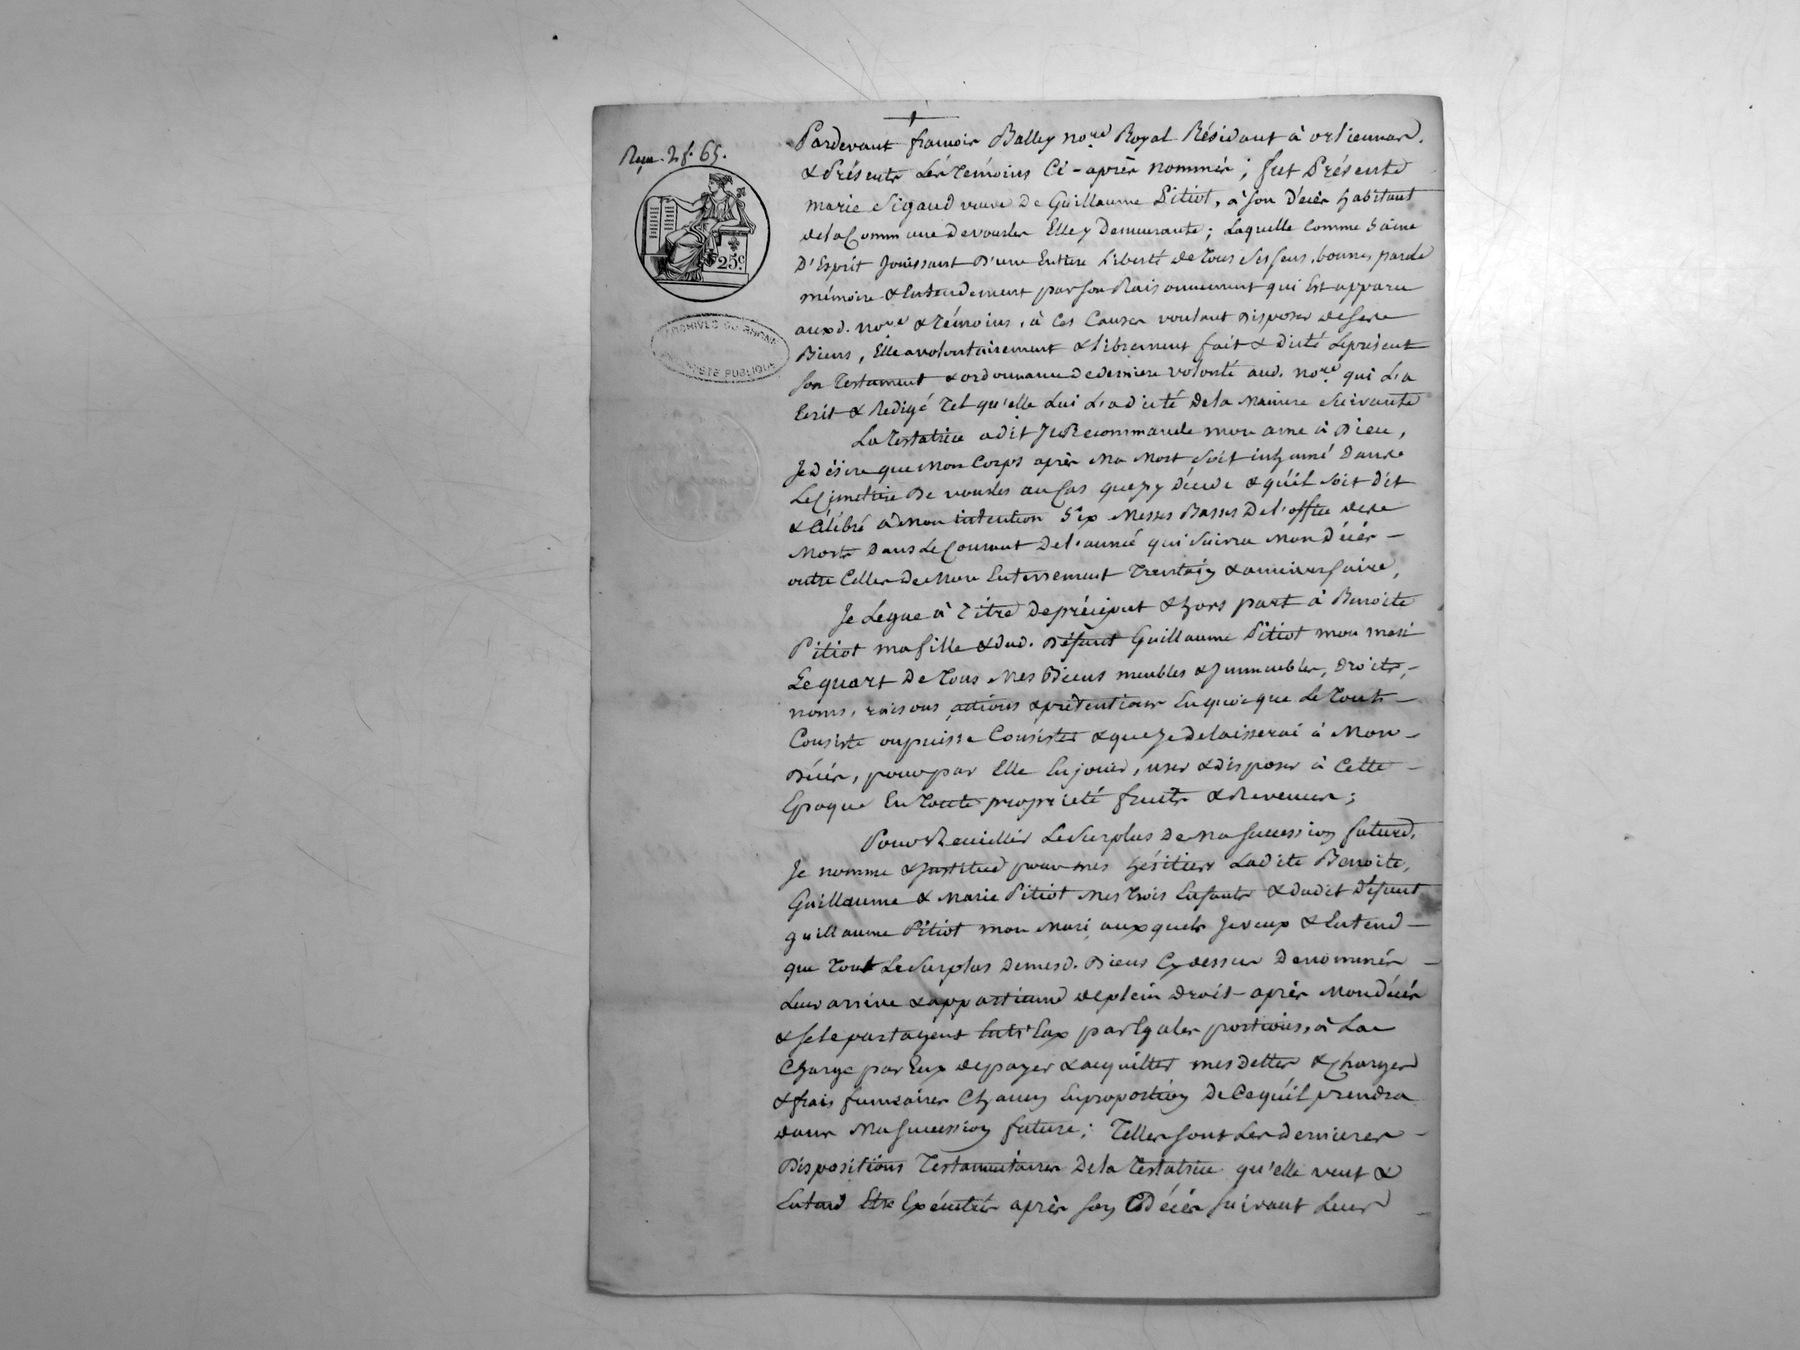 Reçu 2 f. 65.
25c.
ARCHIVES DU RHONE
PUBLIQUE
Pardevant francois Balley nore Royal Résidant à orliennas.
& Présents Les Témoins Ci-après nommés; fut Présente
marie Sigaud veuve De Guillaume Pitiot, à son décès habitant
de la Commune de vourles Elle y Demeurante; Laquelle Comme Saine
D'Esprit Jouissant D'une Entiere Liberté de Tous Ses Sens, bonnes parole
mémoire & Entendement par son Raisonnement qui Est apparu
auxd. nore & Témoins, à Ces Causes voulant Disposer de Ses
Biens, Elle a volontairement & librement fait & dicté Le présent
son Testament & ordonnance de derniere volonté aud. nore qui L'a
Ecrit & Redigé Tel qu'elle Lui L'a dicté De la Maniere Suivante
La Testatrice a dit Je Recommande mon ame à Dieu,
Je Désire que Mon Corps après Ma Mort Soit inhumé Dans
Le Cimetiere De vourles au Cas que j'y décéde & qu'il Soit dit
& Célébré à Mon intention Six Messes Basses De l'office des
Morts Dans Le Courant De l'année qui Suivra Mon Décès -
outre Celles De Mon Enterrement Trentain & anniversaire,
Je Legue à Titre De préciput & hors part à Benoite
Pitiot ma fille & dud. Défunt Guillaume Pitiot mon mari
Le quart De Tous Mes Biens meubles & Immeubles, Droits,-
noms, raisons actions & prétentions En quoi que Le Tout -
Consiste ou puisse Consister & que Je delaisserai à Mon -
Décès, pour par Elle En jouir, user & disposer à Cette -
Epoque En Toute propriété fruits & Revenus;
Pour Recueillir Le Surplus De Ma Succession future,
Je nomme & Institue pour mes héritiers Ladite Benoite,
Guillaume & Marie Pitiot Mes Trois Enfants & dudit Défunt
guillaume Pitiot mon Mari auxquels Je veux & Entend -
que Tout Le Surplus De mesd. Biens Cy dessus Denommés -
Leur arrive & appartienne de plein Droit - après Mon décès
& se le partagent Entr'Eux par Egales portions, à La
Charge par Eux de payer & acquitter mes Dettes & Charges
& frais funéraires Chacun En proportion De Ce qu'il prendra
dans Ma Succession future; Telles sont Les dernieres -
Dispositions Testamentaires De la Testatrice qu'elle veut &
Entend Etre Exécutées après son Décès Suivant Leur -